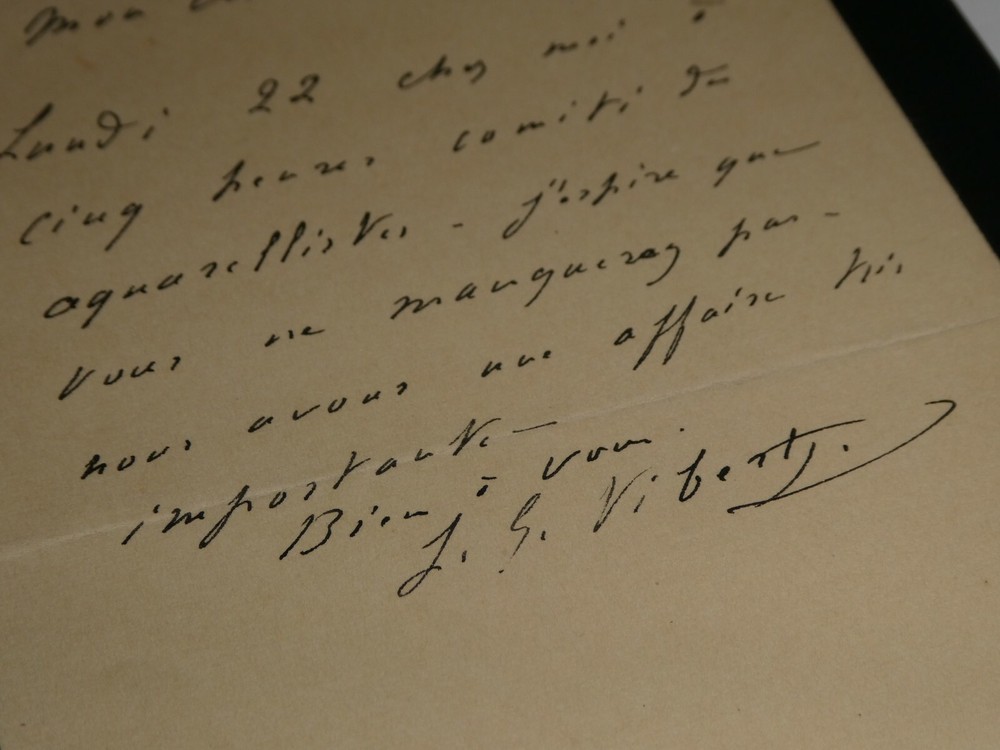 Mon
Lundi 22 chez moi à
cinq heures comité des
aquarellistes - j'espère que
vous ne manquerez pas -
nous avons une affaire très
importante -
Bien à vous.
J. G. Vibert.